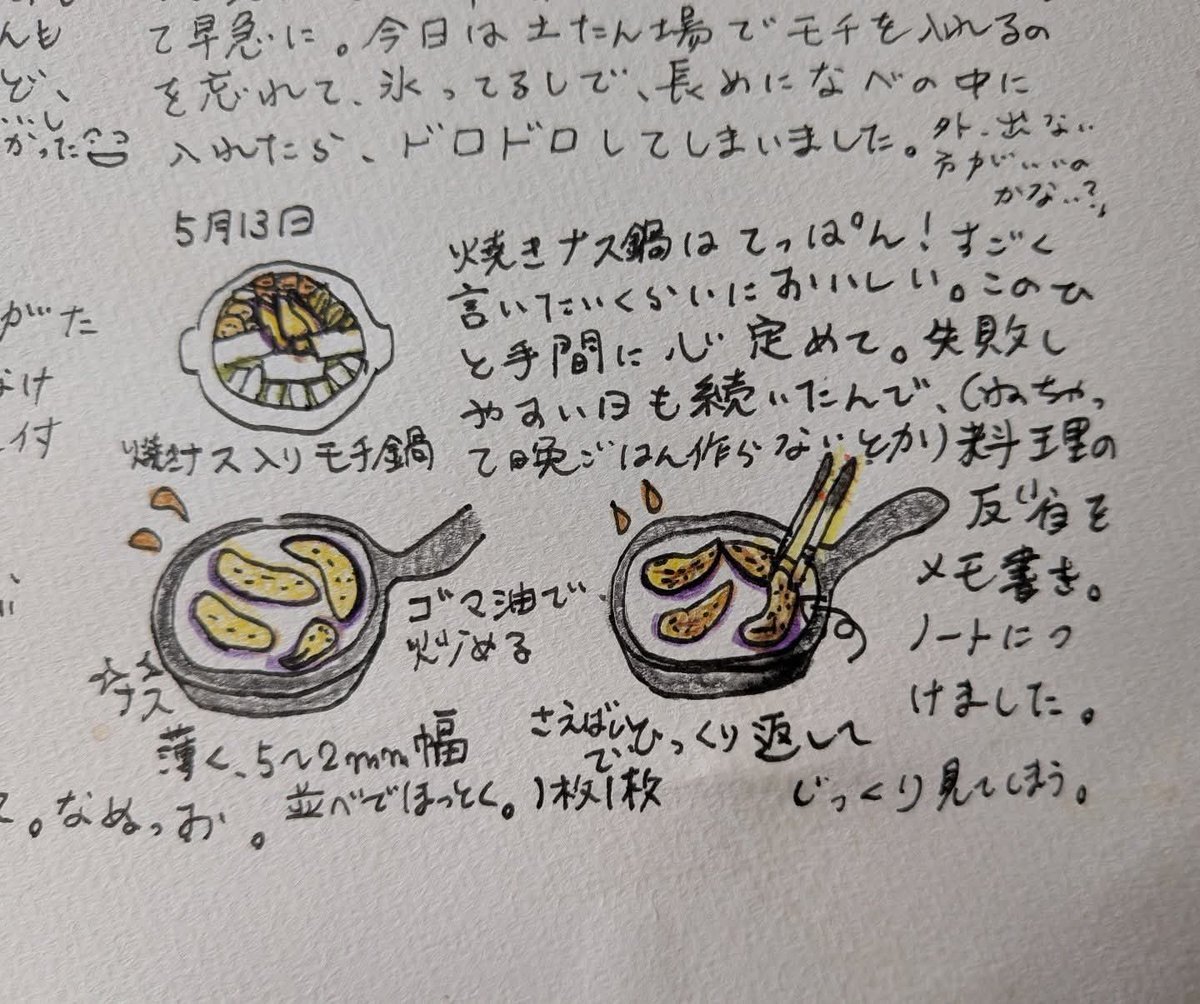 んも
て早急に。今日は土たん場でモチを入れるの
ど、
を忘れて、氷ってるしで、長めになべの中に
かった
入れたら、ドロドロしてしまいました。
外、出ない
方がいいの
かな…?
5月13日
焼きナス鍋はてっぱん！すごく
言いたいくらいにおいしい。このひ
と手間に心定めて。失敗し
やすい日も続いたんで、(ねちゃっ
て晩ごはん作らないとか)料理の
反省を
メモ書き。
ノートにつ
けました。
焼きナス入りモチ鍋
がた
なけ
し付
ゴマ油で
炒める
ナス
薄く、5~2mm幅
並べでほっとく。
さえばしで
ひっくり返して
1枚1枚
じっくり見てしまう。
て。なめっお。